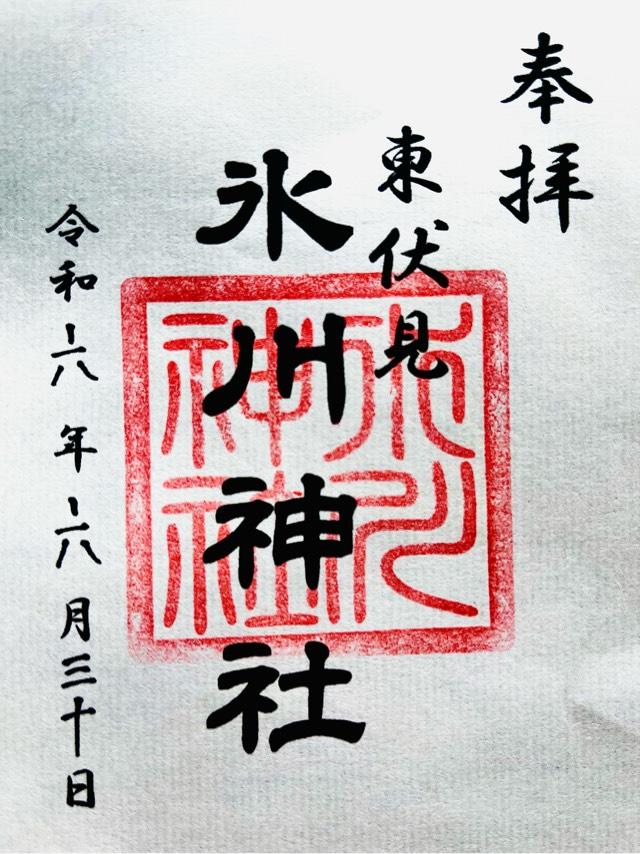 奉拝
東伏見
氷川神社
氷川神社
令和六年六月三十日